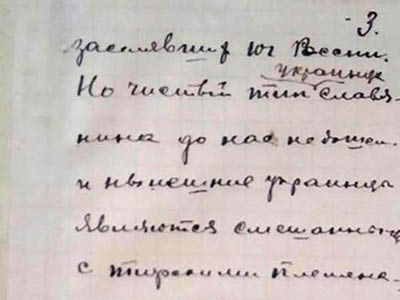 3.
заселявших юг России.
украинца
Но чистый тип славя-
нина до нас не дошел.
и нынешние украинцы
являются смешанны
с тюрскими племена-